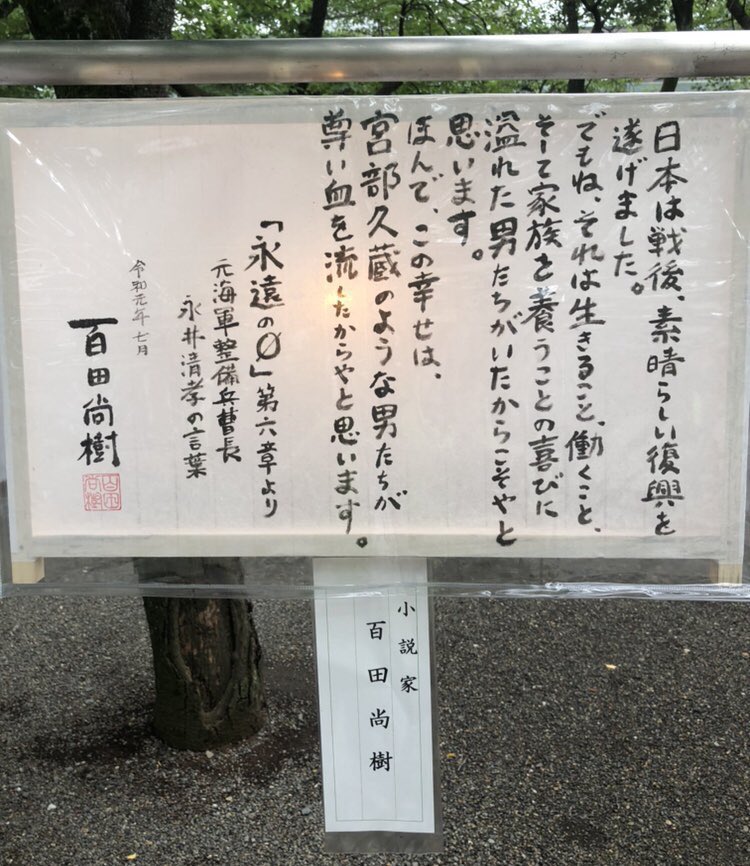 日本は戦後、素晴らしい復興を
遂げました。
でもね、それは生きること、働くこと、
そして家族を養うことの喜びに
溢れた男たちがいたからこそやと
思います。
ほんで、この幸せは、
宮部久蔵のような男たちが
尊い血を流したからやと思います。
「永遠の0」第六章より
元海軍整備兵曹長
永井清孝の言葉
令和元年七月
百田尚樹
百田尚樹
小説家
百田尚樹